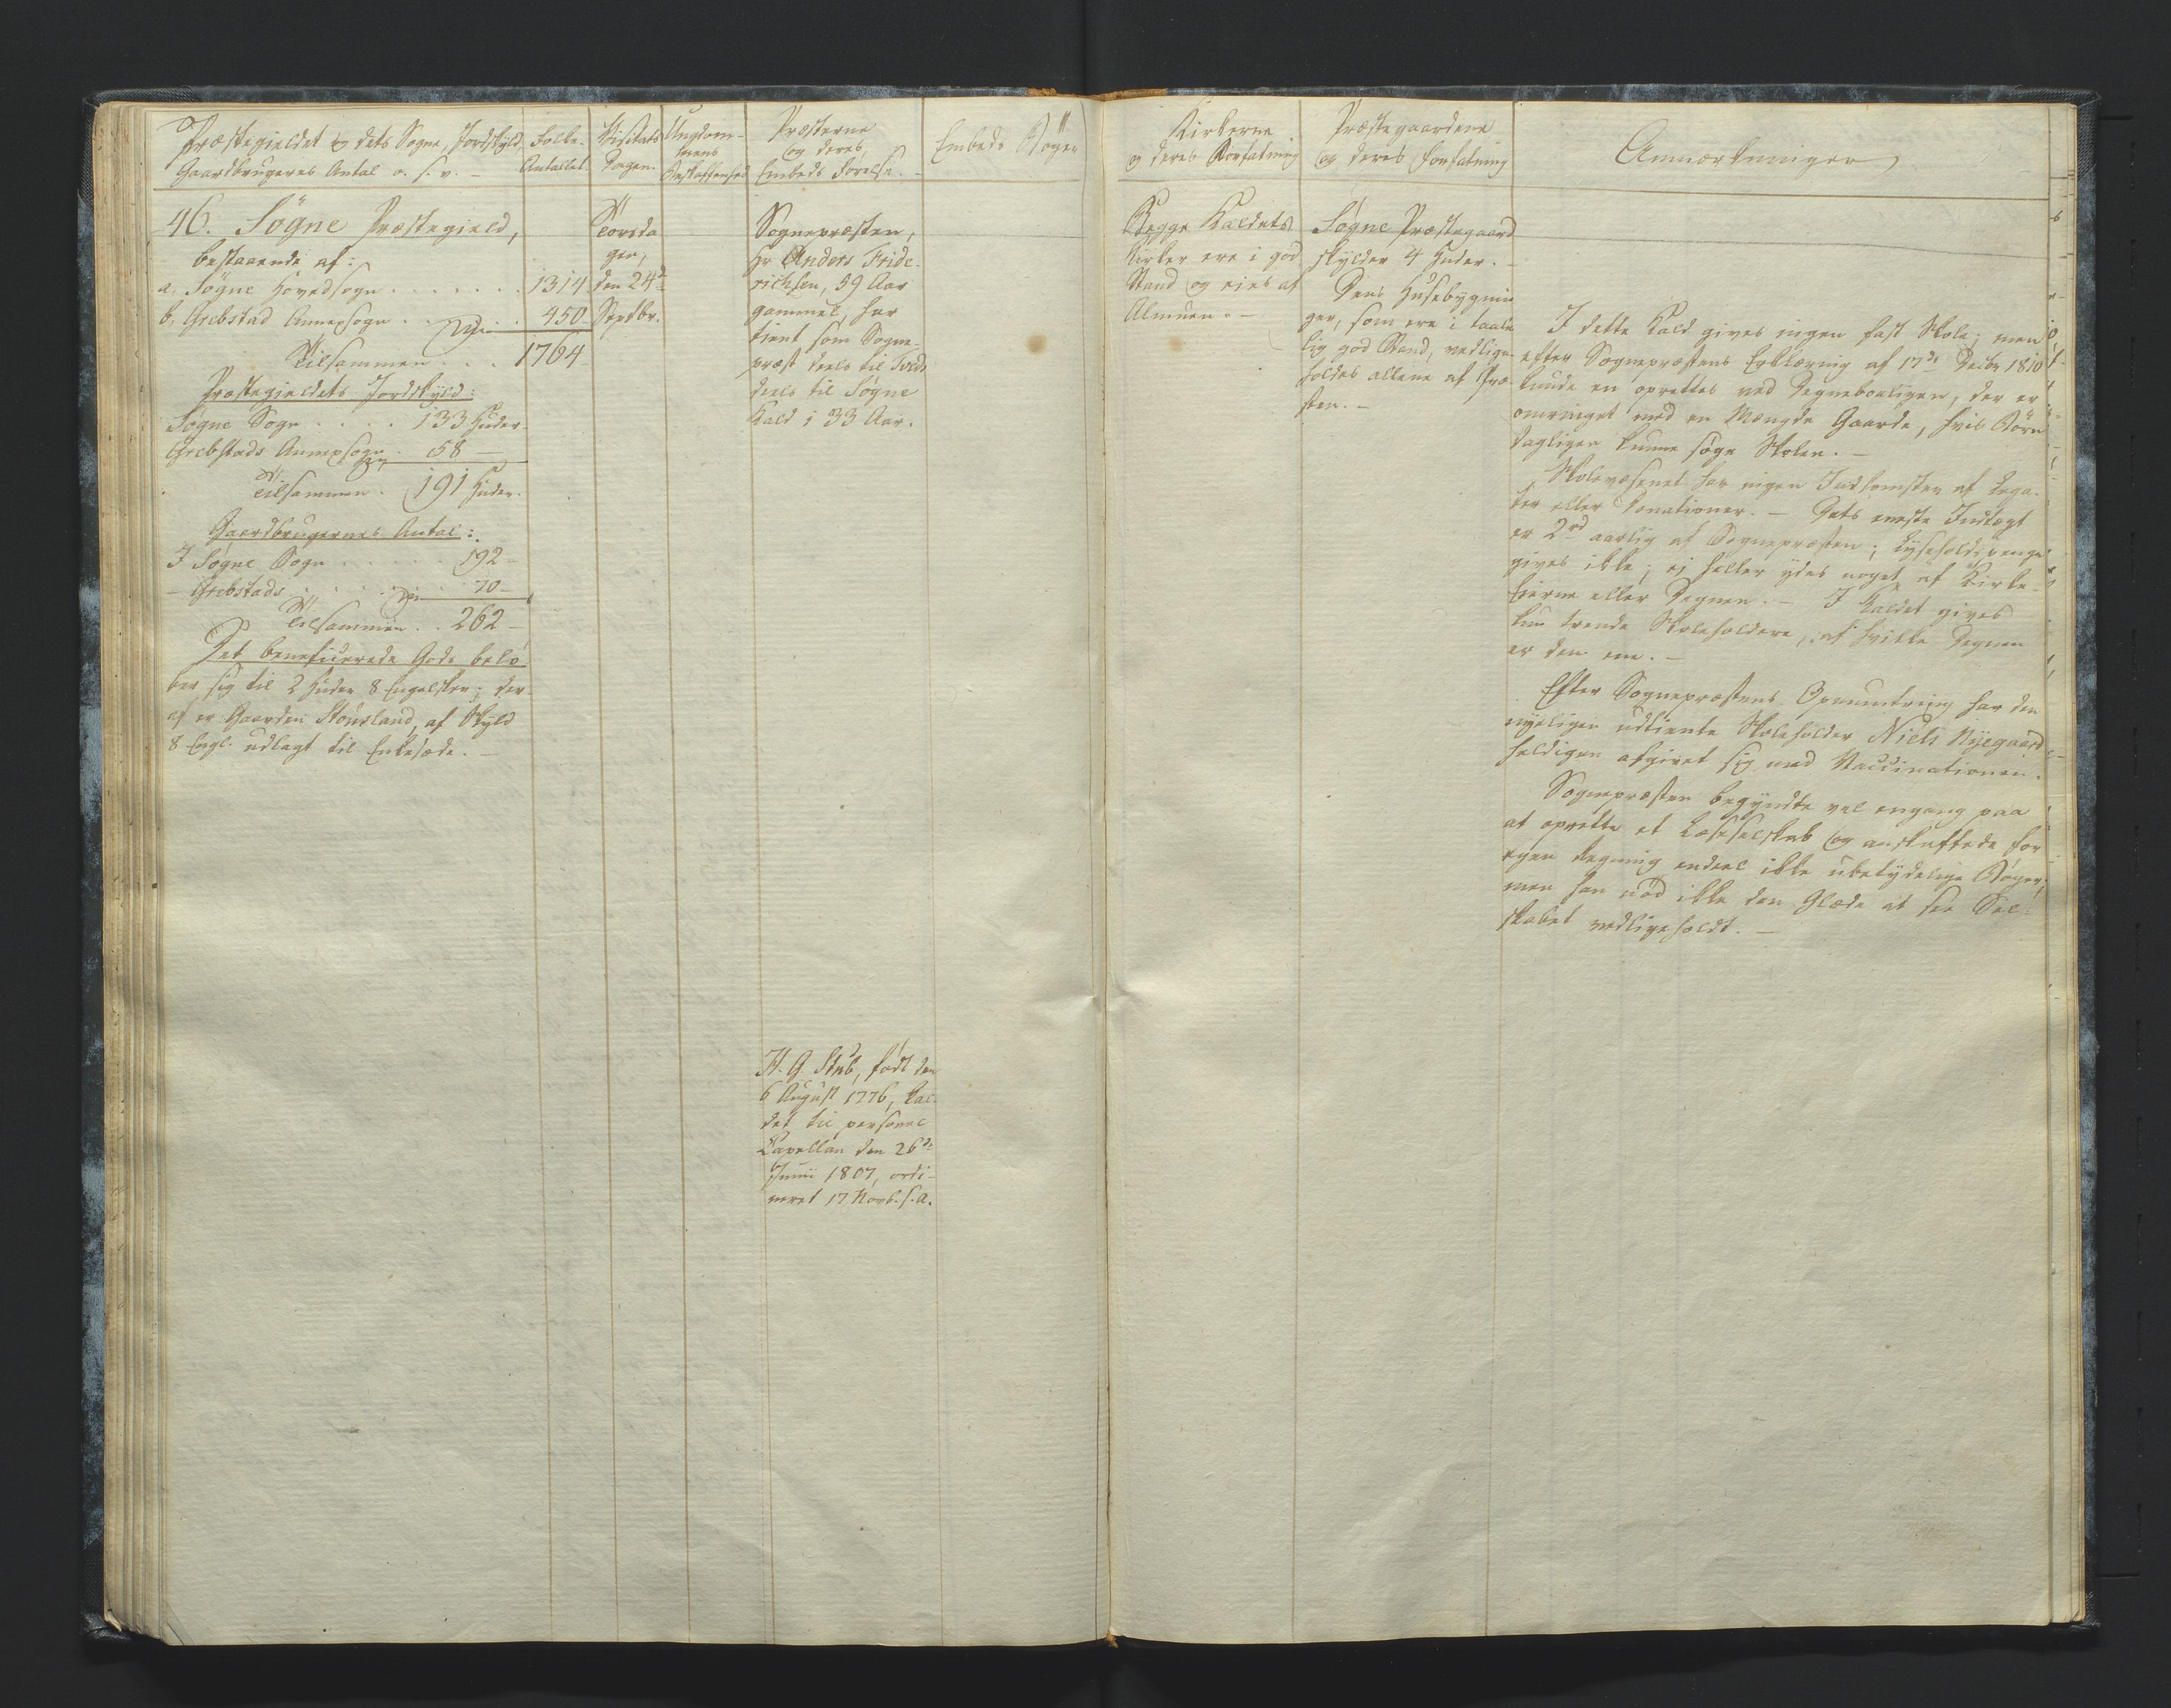 Præstegieldet og dets Sogne, Jordskyld,
Gaardbrugeres Antal o. s. v. -
Folke-
Antallet.
Visitats
Dagen.
Ungdom-
mens
Beskaffenhed
Præsterne
og deres
Embeds Førelse.
Embeds Bøger
Kirkerne
og deres Forfatning
Præstegaardene
og deres Forfatning
Anmærkninger
46. Søgne Præstegield,
bestaaende af:
a. Søgne Hovedsogn . . . . . . . 1314
b. Grebstad Annexsogn . . . . . 450
Tilsammen . . . 1764
Præstegieldets Jordskyld:
Søgne Sogn . . . . 133 Huder
Grebstads Annexsogn . 58 —
Tilsammen . 191 Huder.
Gaardbrugernes Antal:
I Søgne Sogn . . . . . . 192 -
- Grebstads . . . . . . 70 -
Tilsammen . . 262 -
Det beneficerede Gods belø-
ber sig til 2 Huder 8 Engelsker; der-
af er Gaarden Stousland, af Skyld
8 Engl. udlagt til Enkesæde. -
Torsda
gen,
den 24de
Septbr.
Sognepræsten,
Hr Anders Fride-
richsen, 59 Aar
gammel, har
tient som Sogne-
præst deels til
deels til Søgne
Kald i 33 Aar.
H. G. Stub, født den
6 August 1776, kal-
det til personel
Capellan den 26de
Junii 1807, ordi-
neret 17 Novb. s. a.
Begge Kaldets
Kirker ere i god
Stand og eies af
Almuen. -
Søgne Præstegaard
skylder 4 Huder. -
Dens Husebygnin
ger, som ere i taale
lig god Stand, vedlige-
holdes allene af Præ-
sten. -
I dette Kald gives ingen fast Skole; men
efter Sognepræstens Erklæring af 17de Decbr 1810
kunde en oprettes ved Degneboeligen, der er
omringet med en Mængde Gaarde, hvis Børn
dagligen kunne søge Skolen. -
Skolevæsenet har ingen Indkomster af Lega-
ter eller Donationer. - Dets eneste Indtægt
er 2rd aarlig af Sognepræsten; Lyseholdspenge
gives ikke; ej heller ydes noget af Kirke-
Eierne eller Degnen. - I Kaldet gives
kun trende Skoleholdere, af hvilke Degnen
er den ene. -
Efter Sognepræstens Opmuntring har den
nyeligen udtiente Skoleholder Niels Nyegaard
heldigen afgivet sig med Vaccinationen.
Sognepræsten begyndte vel engang paa
at oprette et Læseselskab og anskaffede for
egen Regning endeel ikke ubetydelige Bøger;
men han nød ikke den Glæde at see Sel-
skabet vedligeholdt. -